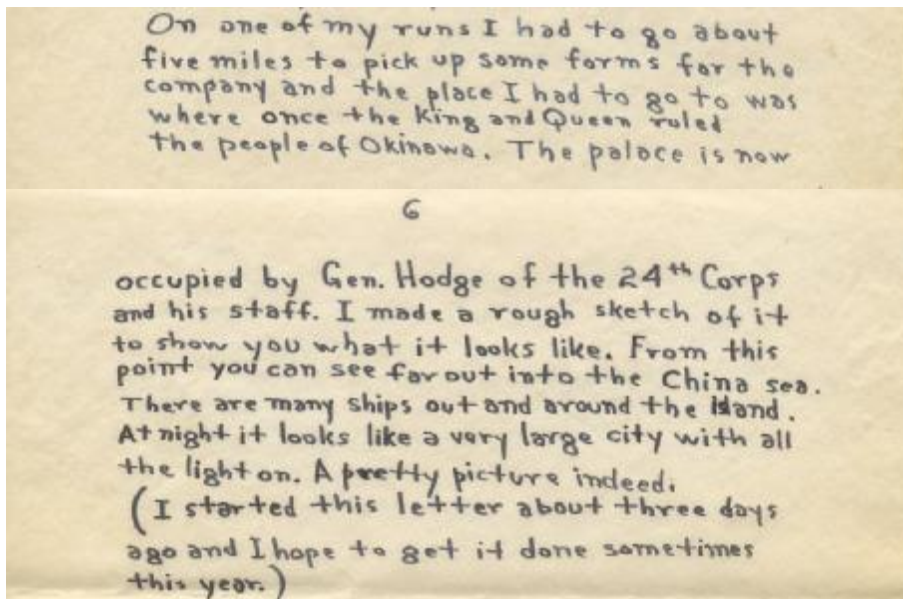 On one of my runs I had to go about
five miles to pick up some forms for the
company and the place I had to go to was
where once the King and Queen ruled
the people of Okinawa. The palace is now
6
occupied by Gen. Hodge of the 24th Corps
and his staff. I made a rough sketch of it
to show you what it looks like. From this
point you can see far out into the China sea.
There are many ships out and around the Island.
At night it looks like a very large city with all
the light on. A pretty picture indeed.
(I started this letter about three days
ago and I hope to get it done sometimes
this year.)